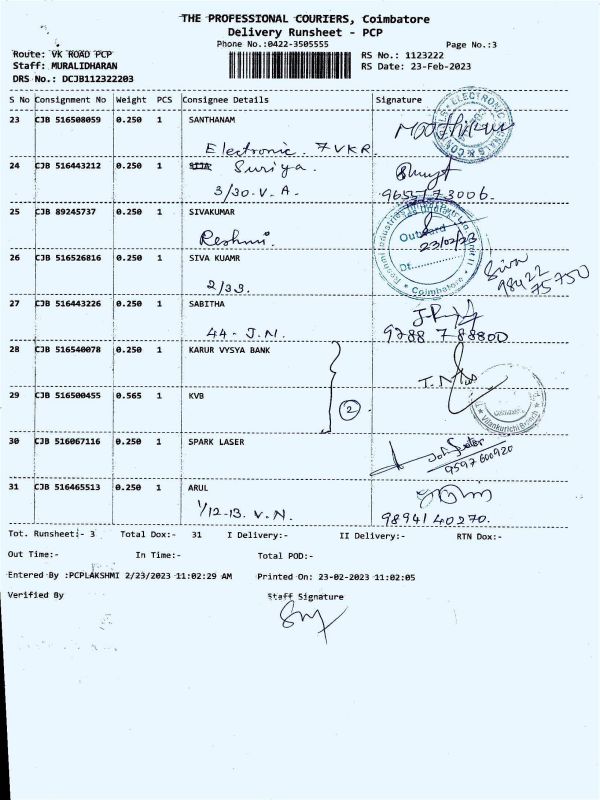 THE PROFESSIONAL COURIERS, Coimbatore
Delivery Runsheet - PCP
Phone No.:0422-3505555 Page No.:3
Route: VK ROAD PCP RS No.: 1123222
Staff: MURALIDHARAN RS Date: 23-Feb-2023
DRS No.: DCJB112322203
S No Consignment No Weight PCS Consignee Details Signature
23 CJB 516508059 0.250 1 SANTHANAM
Electronic. 7 VKR.
24 CJB 516443212 0.250 1 Suriya.
3/30. V. A. 9655173006.
25 CJB 89245737 0.250 1 SIVAKUMAR
Reshmi. Outward 23/02/23
Dt.............. Coimbatore
26 CJB 516526816 0.250 1 SIVA KUAMR
2/33. Siva 98422 75750
27 CJB 516443226 0.250 1 SABITHA
44 - J.N. 9788 7 88800
28 CJB 516540078 0.250 1 KARUR VYSYA BANK
29 CJB 516500455 0.565 1 KVB
2 Vilankurichi Branch
30 CJB 516067116 0.250 1 SPARK LASER
9597600920
31 CJB 516465513 0.250 1 ARUL
1/12-13. V.N. 9894140270.
Tot. Runsheet:- 3 Total Dox:- 31 I Delivery:- II Delivery:- RTN Dox:-
Out Time:- In Time:- Total POD:-
Entered By :PCPLAKSHMI 2/23/2023 11:02:29 AM Printed On: 23-02-2023 11:02:05
Verified By Staff Signature